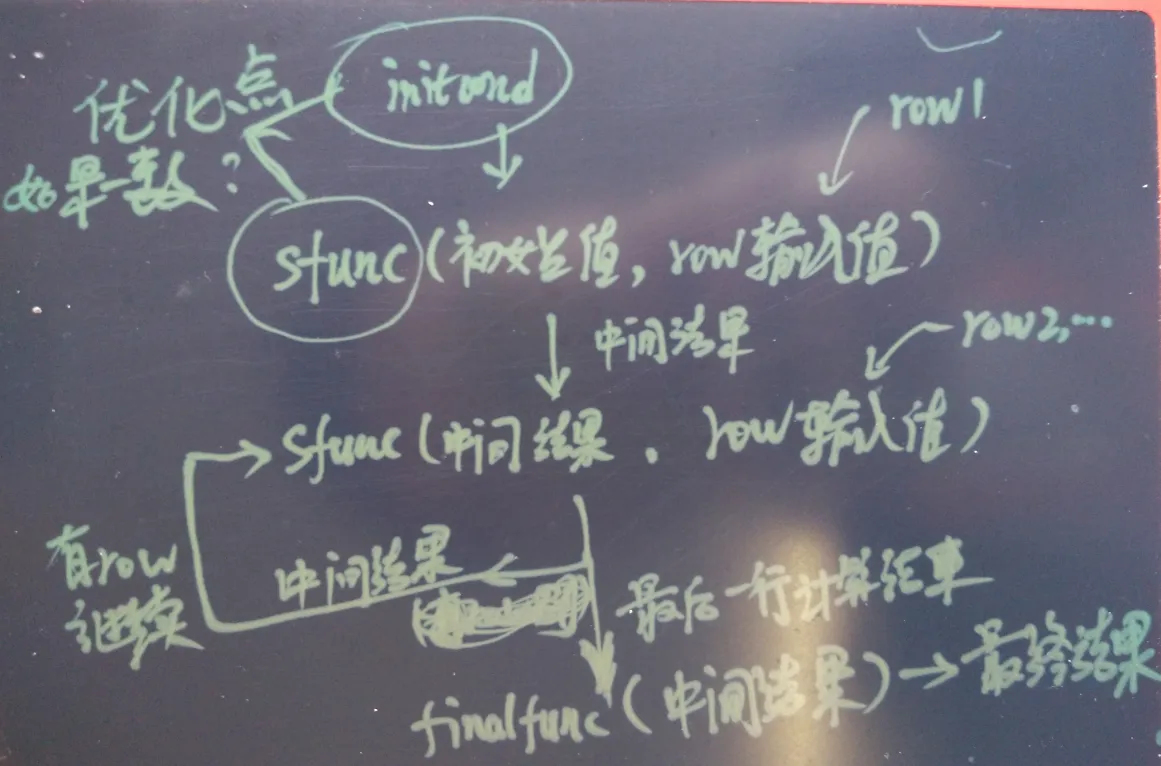 优化点
initcond
row1
如果一致?
sfunc(初始值,row输入值)
中间结果
row2,...
sfunc(中间结果,row输入值)
有row
继续
中间结果
最后一行计算结束
finalfunc(中间结果)→最终结果